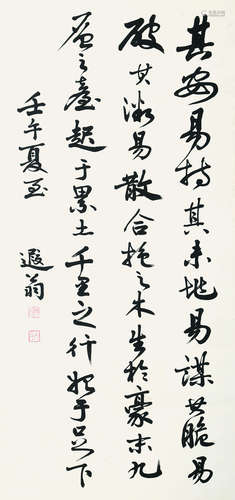 其安易持其未兆易謀其脆易
破其微易散合抱之木生於豪末九
層之臺起于累土千里之行始于足下
壬午夏至
遐翁